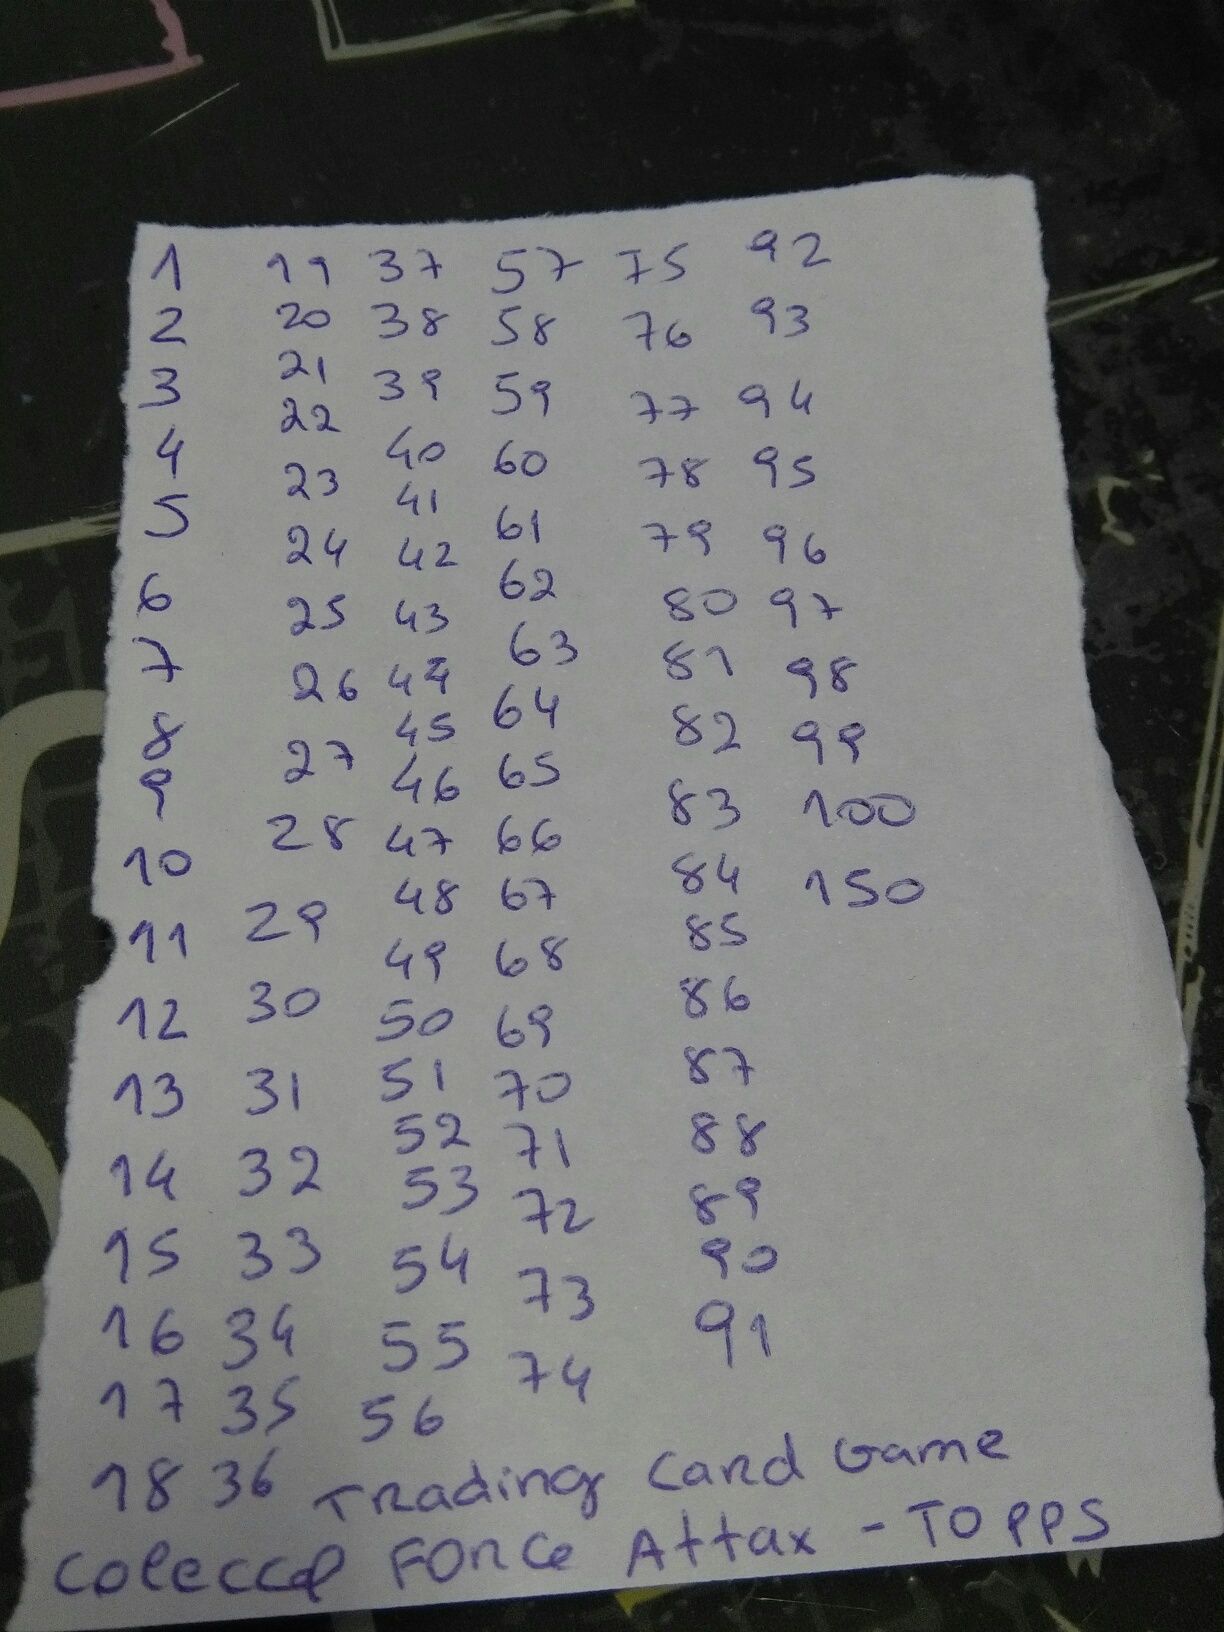 1 19 37 57 75 92
2 20 38 58 76 93
3 21 39 59 77 94
4 22 40 60 78 95
5 23 41 61 79 96
6 24 42 62 80 97
7 25 43 63 81 98
8 26 44 64 82 99
9 27 45 65 83 100
10 28 46 66 84 150
11 29 47 67 85
12 30 48 68 86
13 31 49 69 87
14 32 50 70 88
15 33 51 71 89
16 34 52 72 90
17 35 53 73 91
18 36 54 74
55
56
Trading Card Game
Coleccel Force Attax - TOPPS